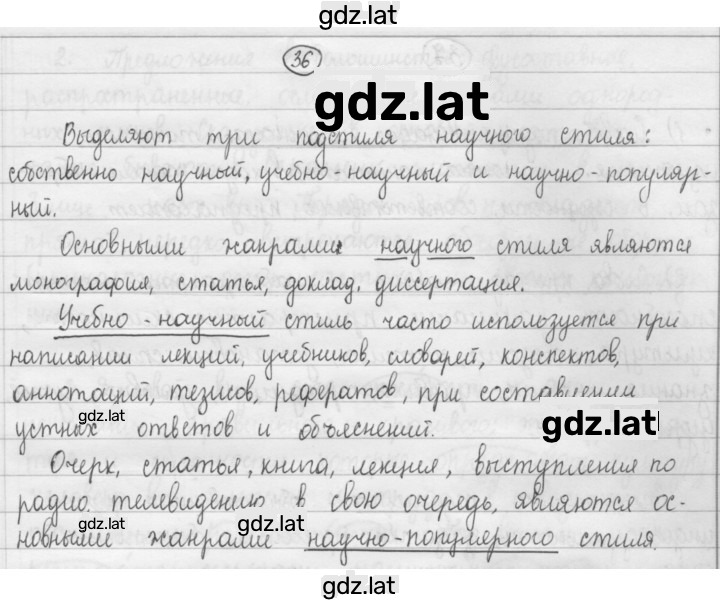 gdz.lat
36
gdz.lat
Выделяют три подстиля научного стиля:
собственно научный, учебно-научный и научно-популяр-
ный.
Основными жанрами научного стиля являются
монография, статья, доклад, диссертация.
Учебно-научный стиль часто используется при
написании лекций, учебников, словарей, конспектов,
аннотаций, тезисов, рефератов, при составлении
gdz.lat
устных ответов и объяснений.
gdz.lat
Очерк, статья, книга, лекция, выступления по
радио, телевидению в свою очередь, являются ос-
gdz.lat
gdz.lat
новными жанрами научно-популярного стиля.
gdz.lat